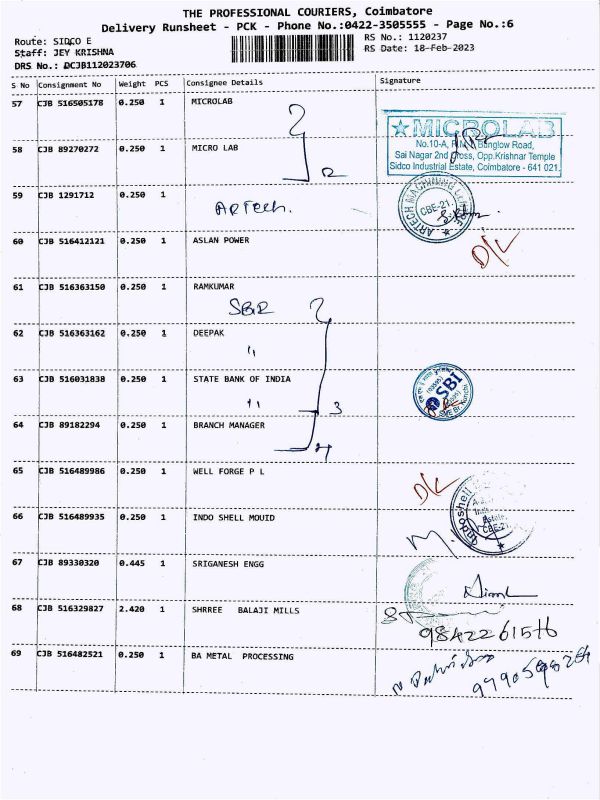 THE PROFESSIONAL COURIERS, Coimbatore
Delivery Runsheet - PCK - Phone No.:0422-3505555 - Page No.:6
Route: SIDCO E
RS No.: 1120237
Staff: JEY KRISHNA
RS Date: 18-Feb-2023
DRS No.: DCJB112023706
S No Consignment No Weight PCS Consignee Details Signature
57 CJB 516505178 0.250 1 MICROLAB
MICROLAB
No.10-A, Bunglow Road,
Sai Nagar 2nd Cross, Opp.Krishnar Temple
Sidco Industrial Estate, Coimbatore - 641 021.
58 CJB 89270272 0.250 1 MICRO LAB
2
59 CJB 1291712 0.250 1
ARTech.
ARTECH MACHINING
CBE-21.
60 CJB 516412121 0.250 1 ASLAN POWER
D/L
61 CJB 516363150 0.250 1 RAMKUMAR
SBI
62 CJB 516363162 0.250 1 DEEPAK
"
63 CJB 516031838 0.250 1 STATE BANK OF INDIA
" 3
SBI
64 CJB 89182294 0.250 1 BRANCH MANAGER
4
65 CJB 516489986 0.250 1 WELL FORGE P L
D/L
66 CJB 516489935 0.250 1 INDO SHELL MOUID
Indoshell
CBE-21
67 CJB 89330320 0.445 1 SRIGANESH ENGG
68 CJB 516329827 2.420 1 SHRREE BALAJI MILLS
69 CJB 516482521 0.250 1 BA METAL PROCESSING